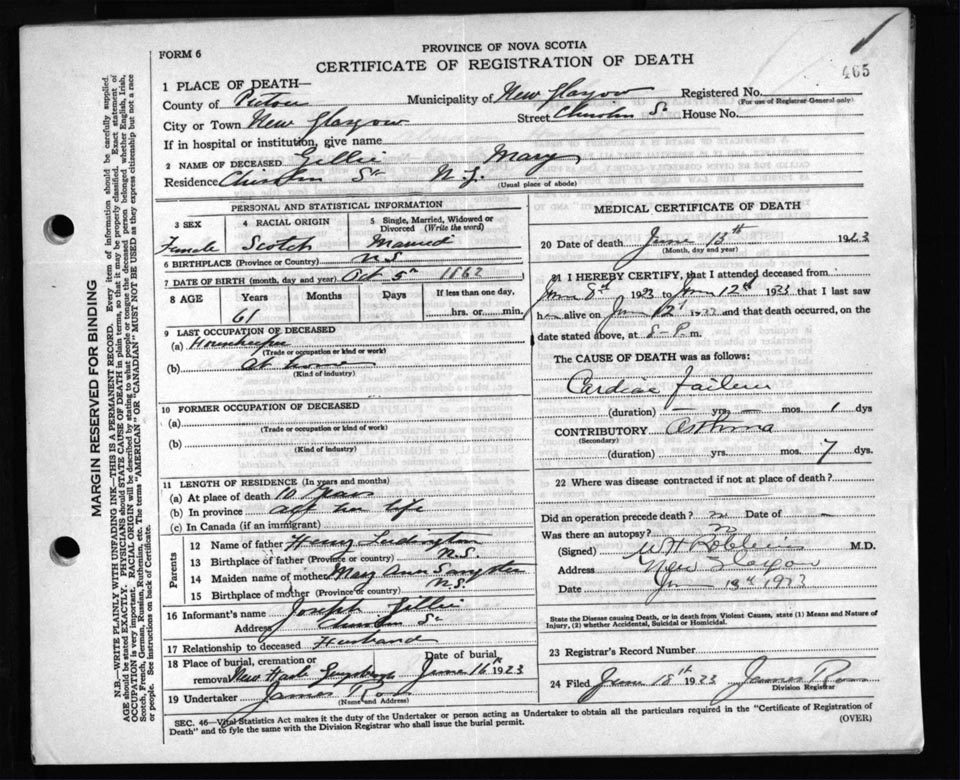 465
FORM 6
PROVINCE OF NOVA SCOTIA
CERTIFICATE OF REGISTRATION OF DEATH
MARGIN RESERVED FOR BINDING
N.B.—WRITE PLAINLY WITH UNFADING INK—THIS IS A PERMANENT RECORD. Every item of information should be carefully supplied.
AGE should be stated EXACTLY. PHYSICIANS should STATE CAUSE OF DEATH in plain terms, so that it may be properly classified. Exact statement of
OCCUPATION is very important. RACIAL ORIGIN will be described by stating to what people or tongue the deceased person belonged whether English, Irish,
Scotch, French, German, Russian, Ruthenian, etc. The terms "AMERICAN" OR "CANADIAN" MUST NOT BE USED as they express citizenship but not a race
or people. See instructions on back of Certificate.
1 PLACE OF DEATH—
County of Pictou Municipality of New Glasgow Registered No.
(For use of Registrar General only)
City or Town New Glasgow Street Chisholm St House No.
If in hospital or institution, give name
2 NAME OF DECEASED Gillis Mary
Residence Chisholm St N.G.
(Usual place of abode)
PERSONAL AND STATISTICAL INFORMATION
3 SEX 4 RACIAL ORIGIN 5 Single, Married, Widowed or Divorced (Write the word)
Female Scotch Married
6 BIRTHPLACE (Province or Country) N.S.
7 DATE OF BIRTH (month, day and year) Oct 5th 1862
8 AGE Years Months Days If less than one day,
61 hrs. or min.
9 LAST OCCUPATION OF DECEASED
(a) Housekeeper
(Trade or occupation or kind or work)
(b) At home
(Kind of industry)
10 FORMER OCCUPATION OF DECEASED
(a)
(Trade or occupation or kind of work)
(b)
(Kind of industry)
11 LENGTH OF RESIDENCE (In years and months)
(a) At place of death 10 years
(b) In province all her life
(c) In Canada (if an immigrant)
Parents
12 Name of father Henry Ludington
13 Birthplace of father (Province or country) N.S.
14 Maiden name of mother Mary Ann Sangster
15 Birthplace of mother (Province or country) N.S.
16 Informant's name Joseph Gillis
Address Chisholm St
17 Relationship to deceased Husband
18 Place of burial, cremation or removal New Date of burial June 16th 1923
19 Undertaker James Ross
(Name and Address)
MEDICAL CERTIFICATE OF DEATH
20 Date of death June 13th 1923
(Month, day and year)
21 I HEREBY CERTIFY, that I attended deceased from
June 8th 1923 to June 12th 1923 that I last saw
her alive on June 12th 1923 and that death occurred, on the
date stated above, at 8-P. m.
The CAUSE OF DEATH was as follows:
Cardiac failure
(duration) — yrs. — mos. 1 dys
CONTRIBUTORY Asthma
(Secondary)
(duration) yrs. mos. 7 dys.
22 Where was disease contracted if not at place of death?
Did an operation precede death? no Date of —
Was there an autopsy? no
(Signed) W H M.D.
Address New Glasgow
Date June 13th 1923
State the Disease causing Death, or in death from Violent Causes, state (1) Means and Nature of
Injury, (2) whether Accidental, Suicidal or Homicidal.
23 Registrar's Record Number
24 Filed June 18th 1923 James Ross
Division Registrar
SEC. 46—Vital Statistics Act makes it the duty of the Undertaker or person acting as Undertaker to obtain all the particulars required in the "Certificate of Registration of
Death" and to fyle the same with the Division Registrar who shall issue the burial permit.
(OVER)